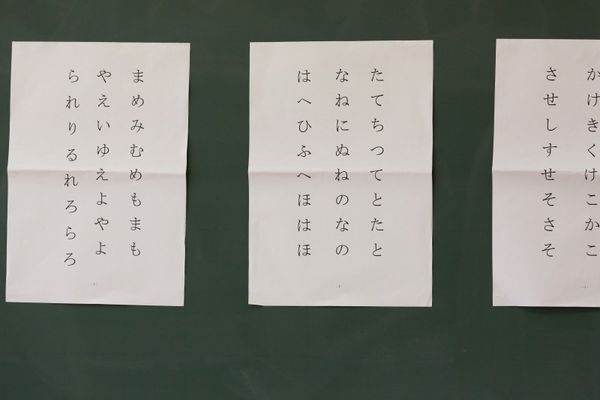 かけきくけこかこ
させしすせそさそ
たてちつてとたと
なねにぬねのなの
はへひふへほはほ
まめみむめもまも
やえいゆえよやよ
られりるれろらろ